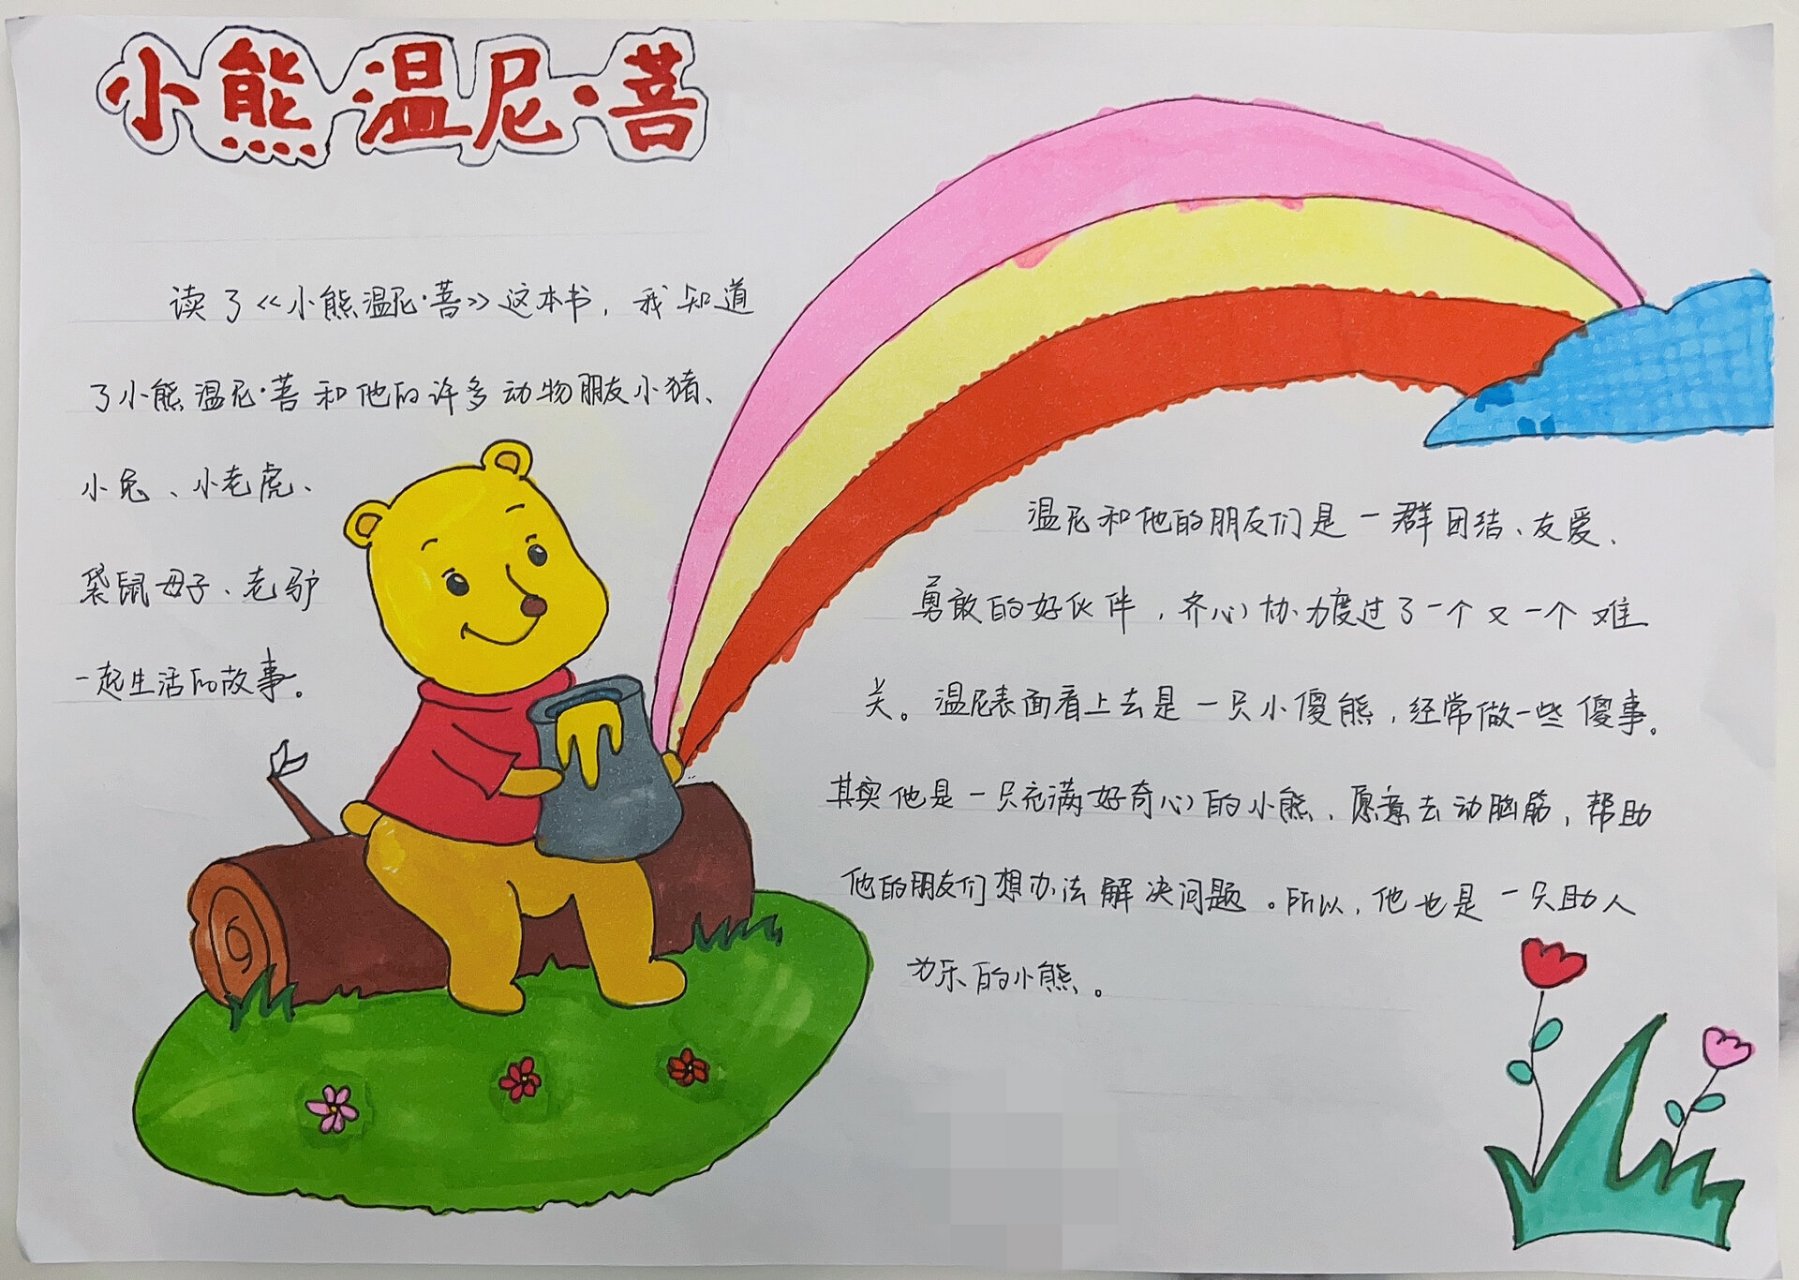 小熊温尼·菩
读了《小熊温尼·菩》这本书，我知道
了小熊温尼·菩和他的许多动物朋友小猪、
小兔、小老虎、
袋鼠母子、老驴
一起生活的故事。
温尼和他的朋友们是一群团结、友爱、
勇敢的好伙伴，齐心协力度过了一个又一个难
关。温尼表面看上去是一只小傻熊，经常做一些傻事。
其实他是一只充满好奇心的小熊，愿意去动脑筋，帮助
他的朋友们想办法解决问题。所以，他也是一只助人
为乐的小熊。